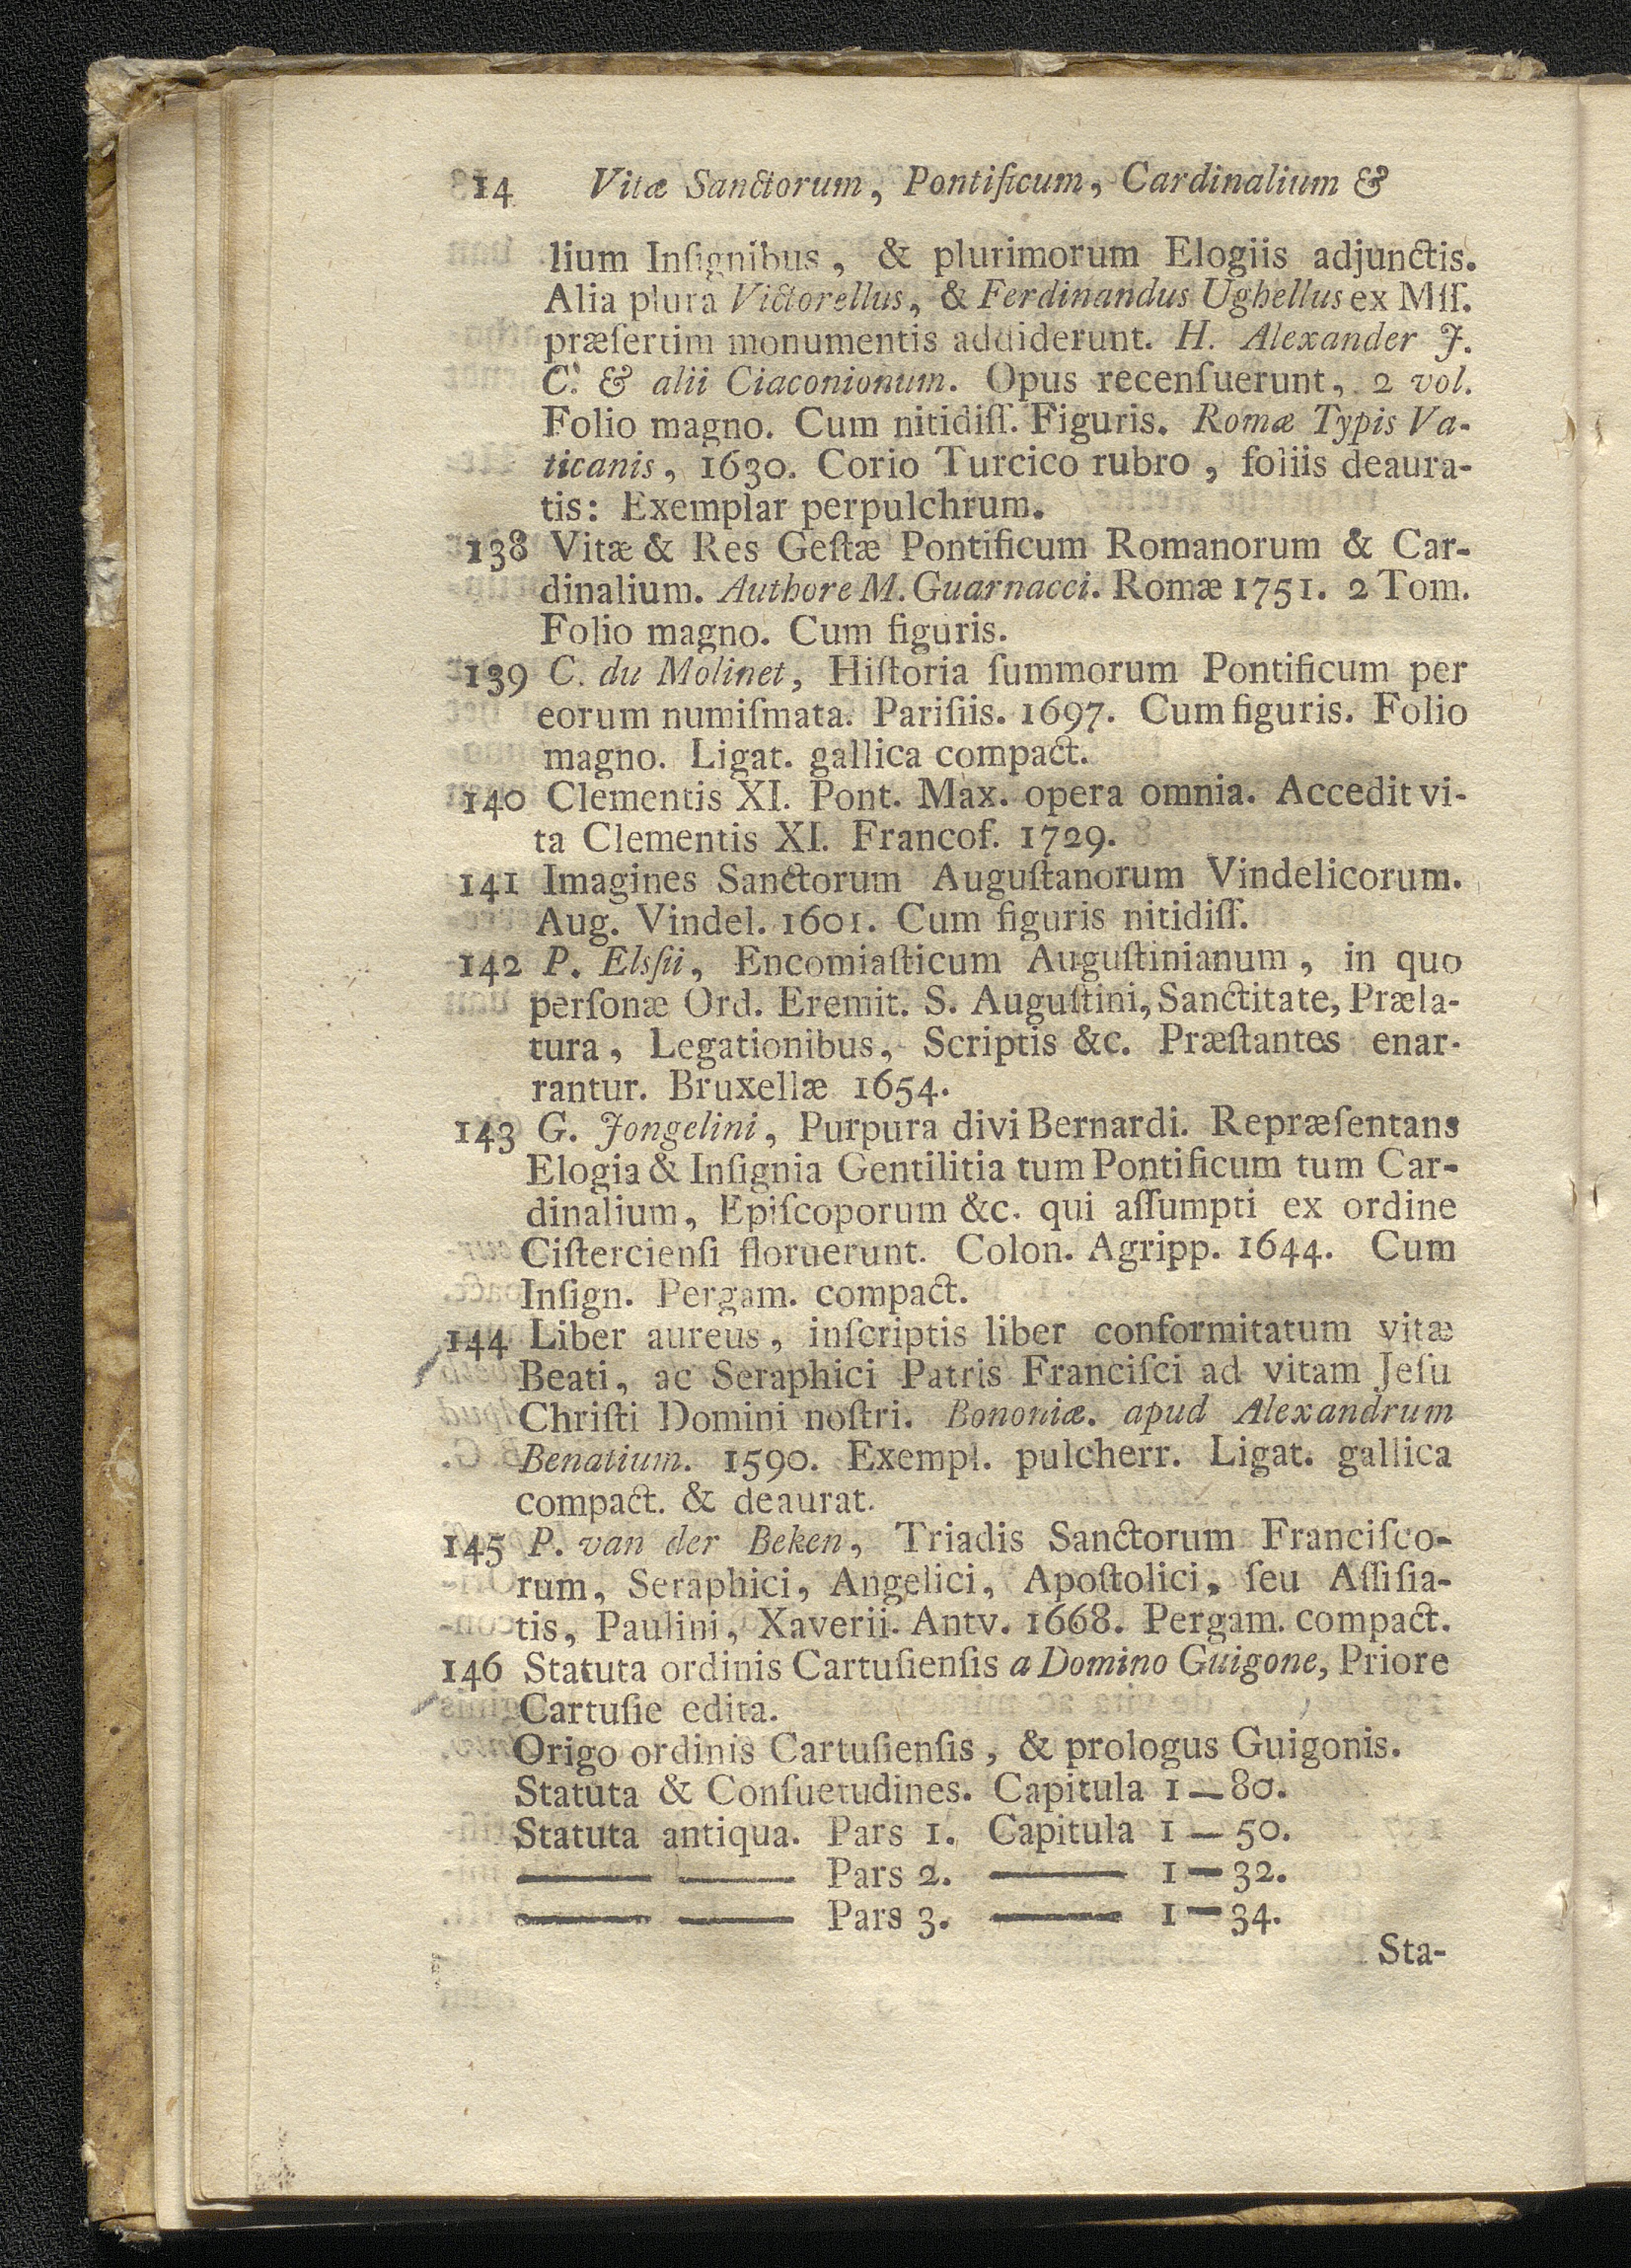 14 Vitæ Sanctorum, Pontificum, Cardinalium &
lium Inſignibus, & plurimorum Elogiis adjunctis.
Alia plura Victorellus, & Ferdinandus Ughellus ex Mſſ.
præſertim monumentis addiderunt. H. Alexander J.
C. & alii Ciaconionum. Opus recenſuerunt, 2 vol.
Folio magno. Cum nitidiſſ. Figuris. Romæ Typis Va-
ticanis, 1630. Corio Turcico rubro, foliis deaura-
tis: Exemplar perpulchrum.
138 Vitæ & Res Geſtæ Pontificum Romanorum & Car-
dinalium. Authore M. Guarnacci. Romæ 1751. 2 Tom.
Folio magno. Cum figuris.
139 C. du Molinet, Hiſtoria ſummorum Pontificum per
eorum numiſmata. Pariſiis. 1697. Cum figuris. Folio
magno. Ligat. gallica compact.
140 Clementis XI. Pont. Max. opera omnia. Accedit vi-
ta Clementis XI. Francof. 1729.
141 Imagines Sanctorum Auguſtanorum Vindelicorum.
Aug. Vindel. 1601. Cum figuris nitidiſſ.
142 P. Elsſii, Encomiaſticum Auguſtinianum, in quo
perſonæ Ord. Eremit. S. Auguſtini, Sanctitate, Præla-
tura, Legationibus, Scriptis &c. Præſtantes enar-
rantur. Bruxellæ 1654.
143 G. Jongelini, Purpura divi Bernardi. Repræſentans
Elogia & Inſignia Gentilitia tum Pontificum tum Car-
dinalium, Epiſcoporum &c. qui aſſumpti ex ordine
Ciſtercienſi floruerunt. Colon. Agripp. 1644. Cum
Inſign. Pergam. compact.
144 Liber aureus, inſcriptis liber conformitatum vitæ
Beati, ac Seraphici Patris Franciſci ad vitam Jeſu
Chriſti Domini noſtri. Bononiæ. apud Alexandrum
Benatium. 1590. Exempl. pulcherr. Ligat. gallica
compact. & deaurat.
145 P. van der Beken, Triadis Sanctorum Franciſco-
rum, Seraphici, Angelici, Apoſtolici, ſeu Aſſiſia-
tis, Paulini, Xaverii. Antv. 1668. Pergam. compact.
146 Statuta ordinis Cartuſienſis a Domino Guigone, Priore
Cartuſie edita.
Origo ordinis Cartuſienſis, & prologus Guigonis.
Statuta & Conſuetudines. Capitula 1 — 80.
Statuta antiqua. Pars 1. Capitula 1 — 50.
—— —— Pars 2. —— 1 — 32.
—— —— Pars 3. —— 1 — 34.
Sta-